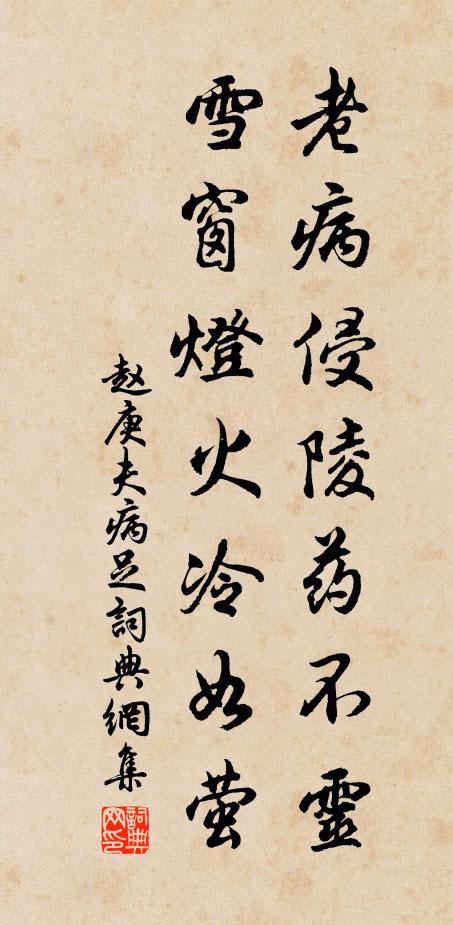 老病侵陵药不靈
雪窗燈火冷如萤
赵庚夫病足詞典網集
詞典網印